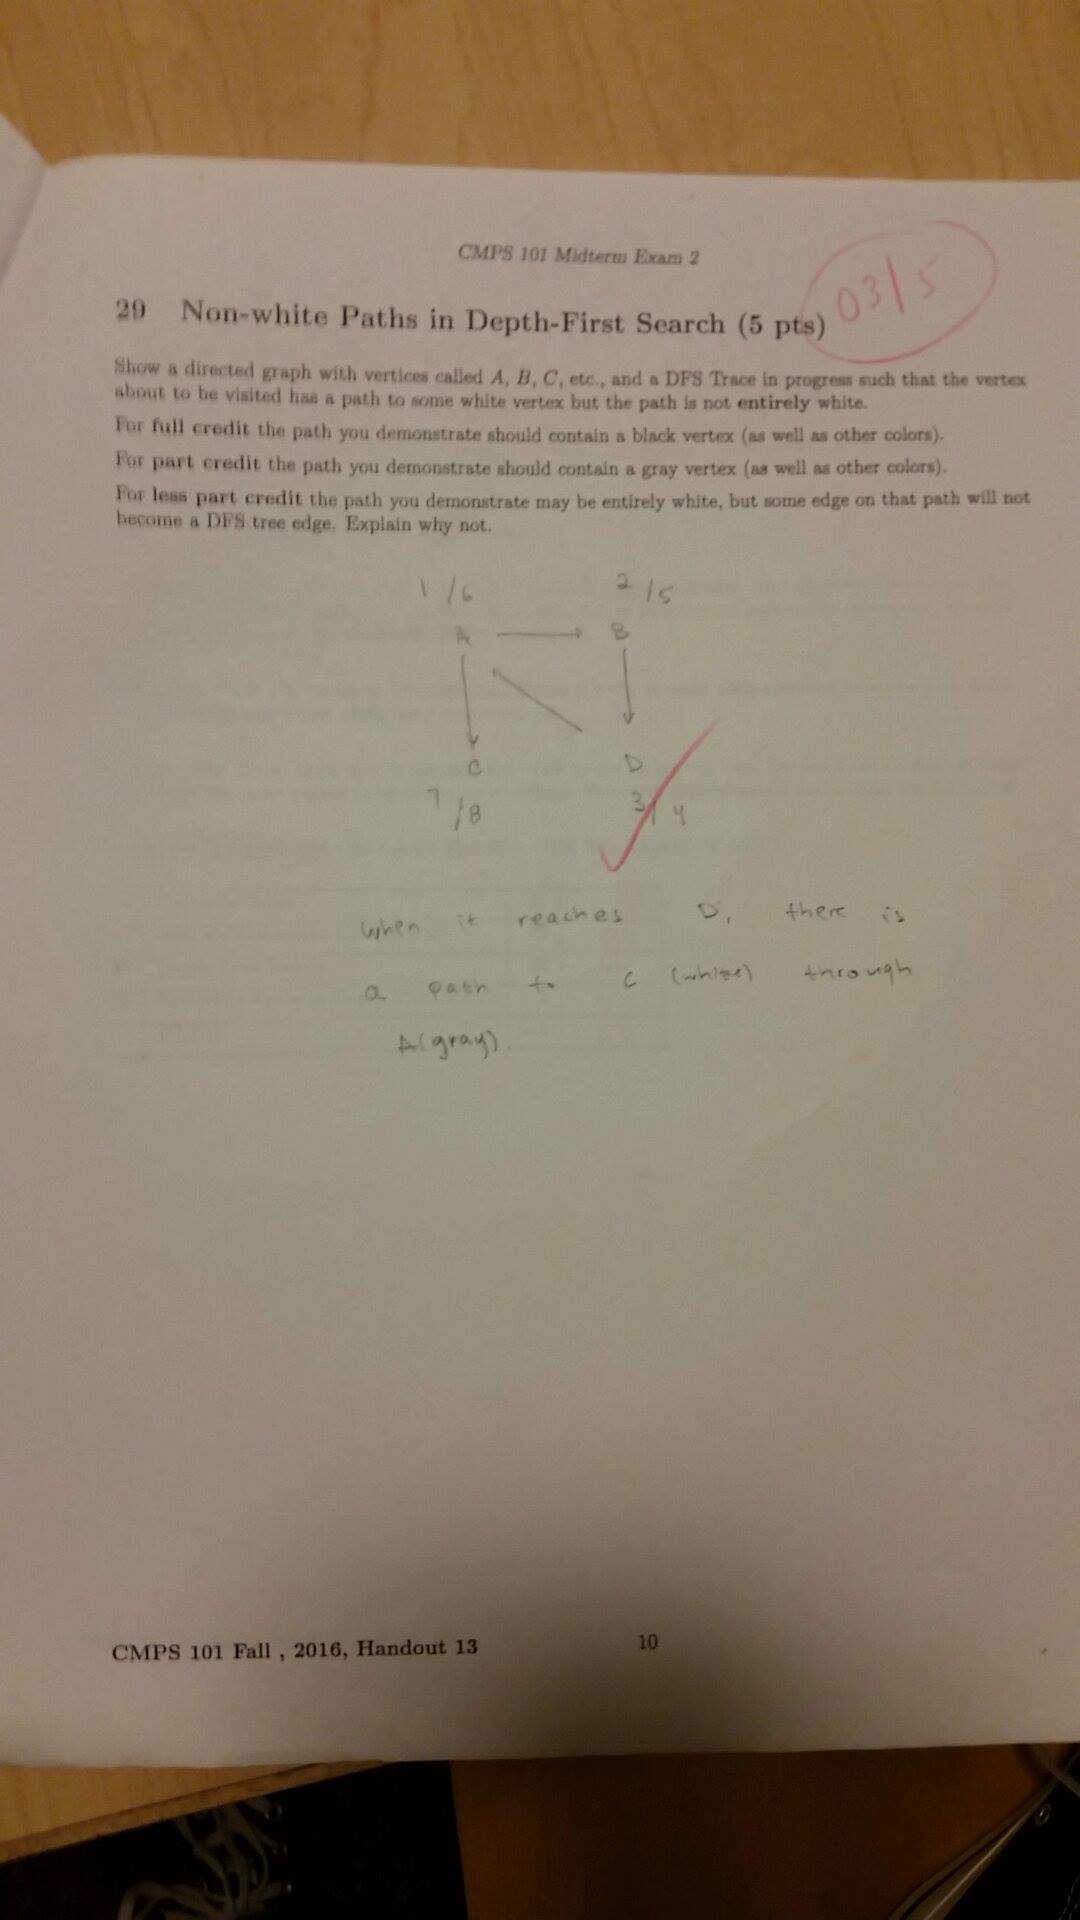 CMPS 101 Midterm Exam 2
03/5
29 Non-white Paths in Depth-First Search (5 pts)
Show a directed graph with vertices called A, B, C, etc., and a DFS Trace in progress such that the vertex
about to be visited has a path to some white vertex but the path is not entirely white.
For full credit the path you demonstrate should contain a black vertex (as well as other colors).
For part credit the path you demonstrate should contain a gray vertex (as well as other colors).
For less part credit the path you demonstrate may be entirely white, but some edge on that path will not
become a DFS tree edge. Explain why not.
1/6 2/5
A B
C D
7/8 3/4
When it reaches D, there is
a path to C (white) through
A(gray).
CMPS 101 Fall , 2016, Handout 13 10